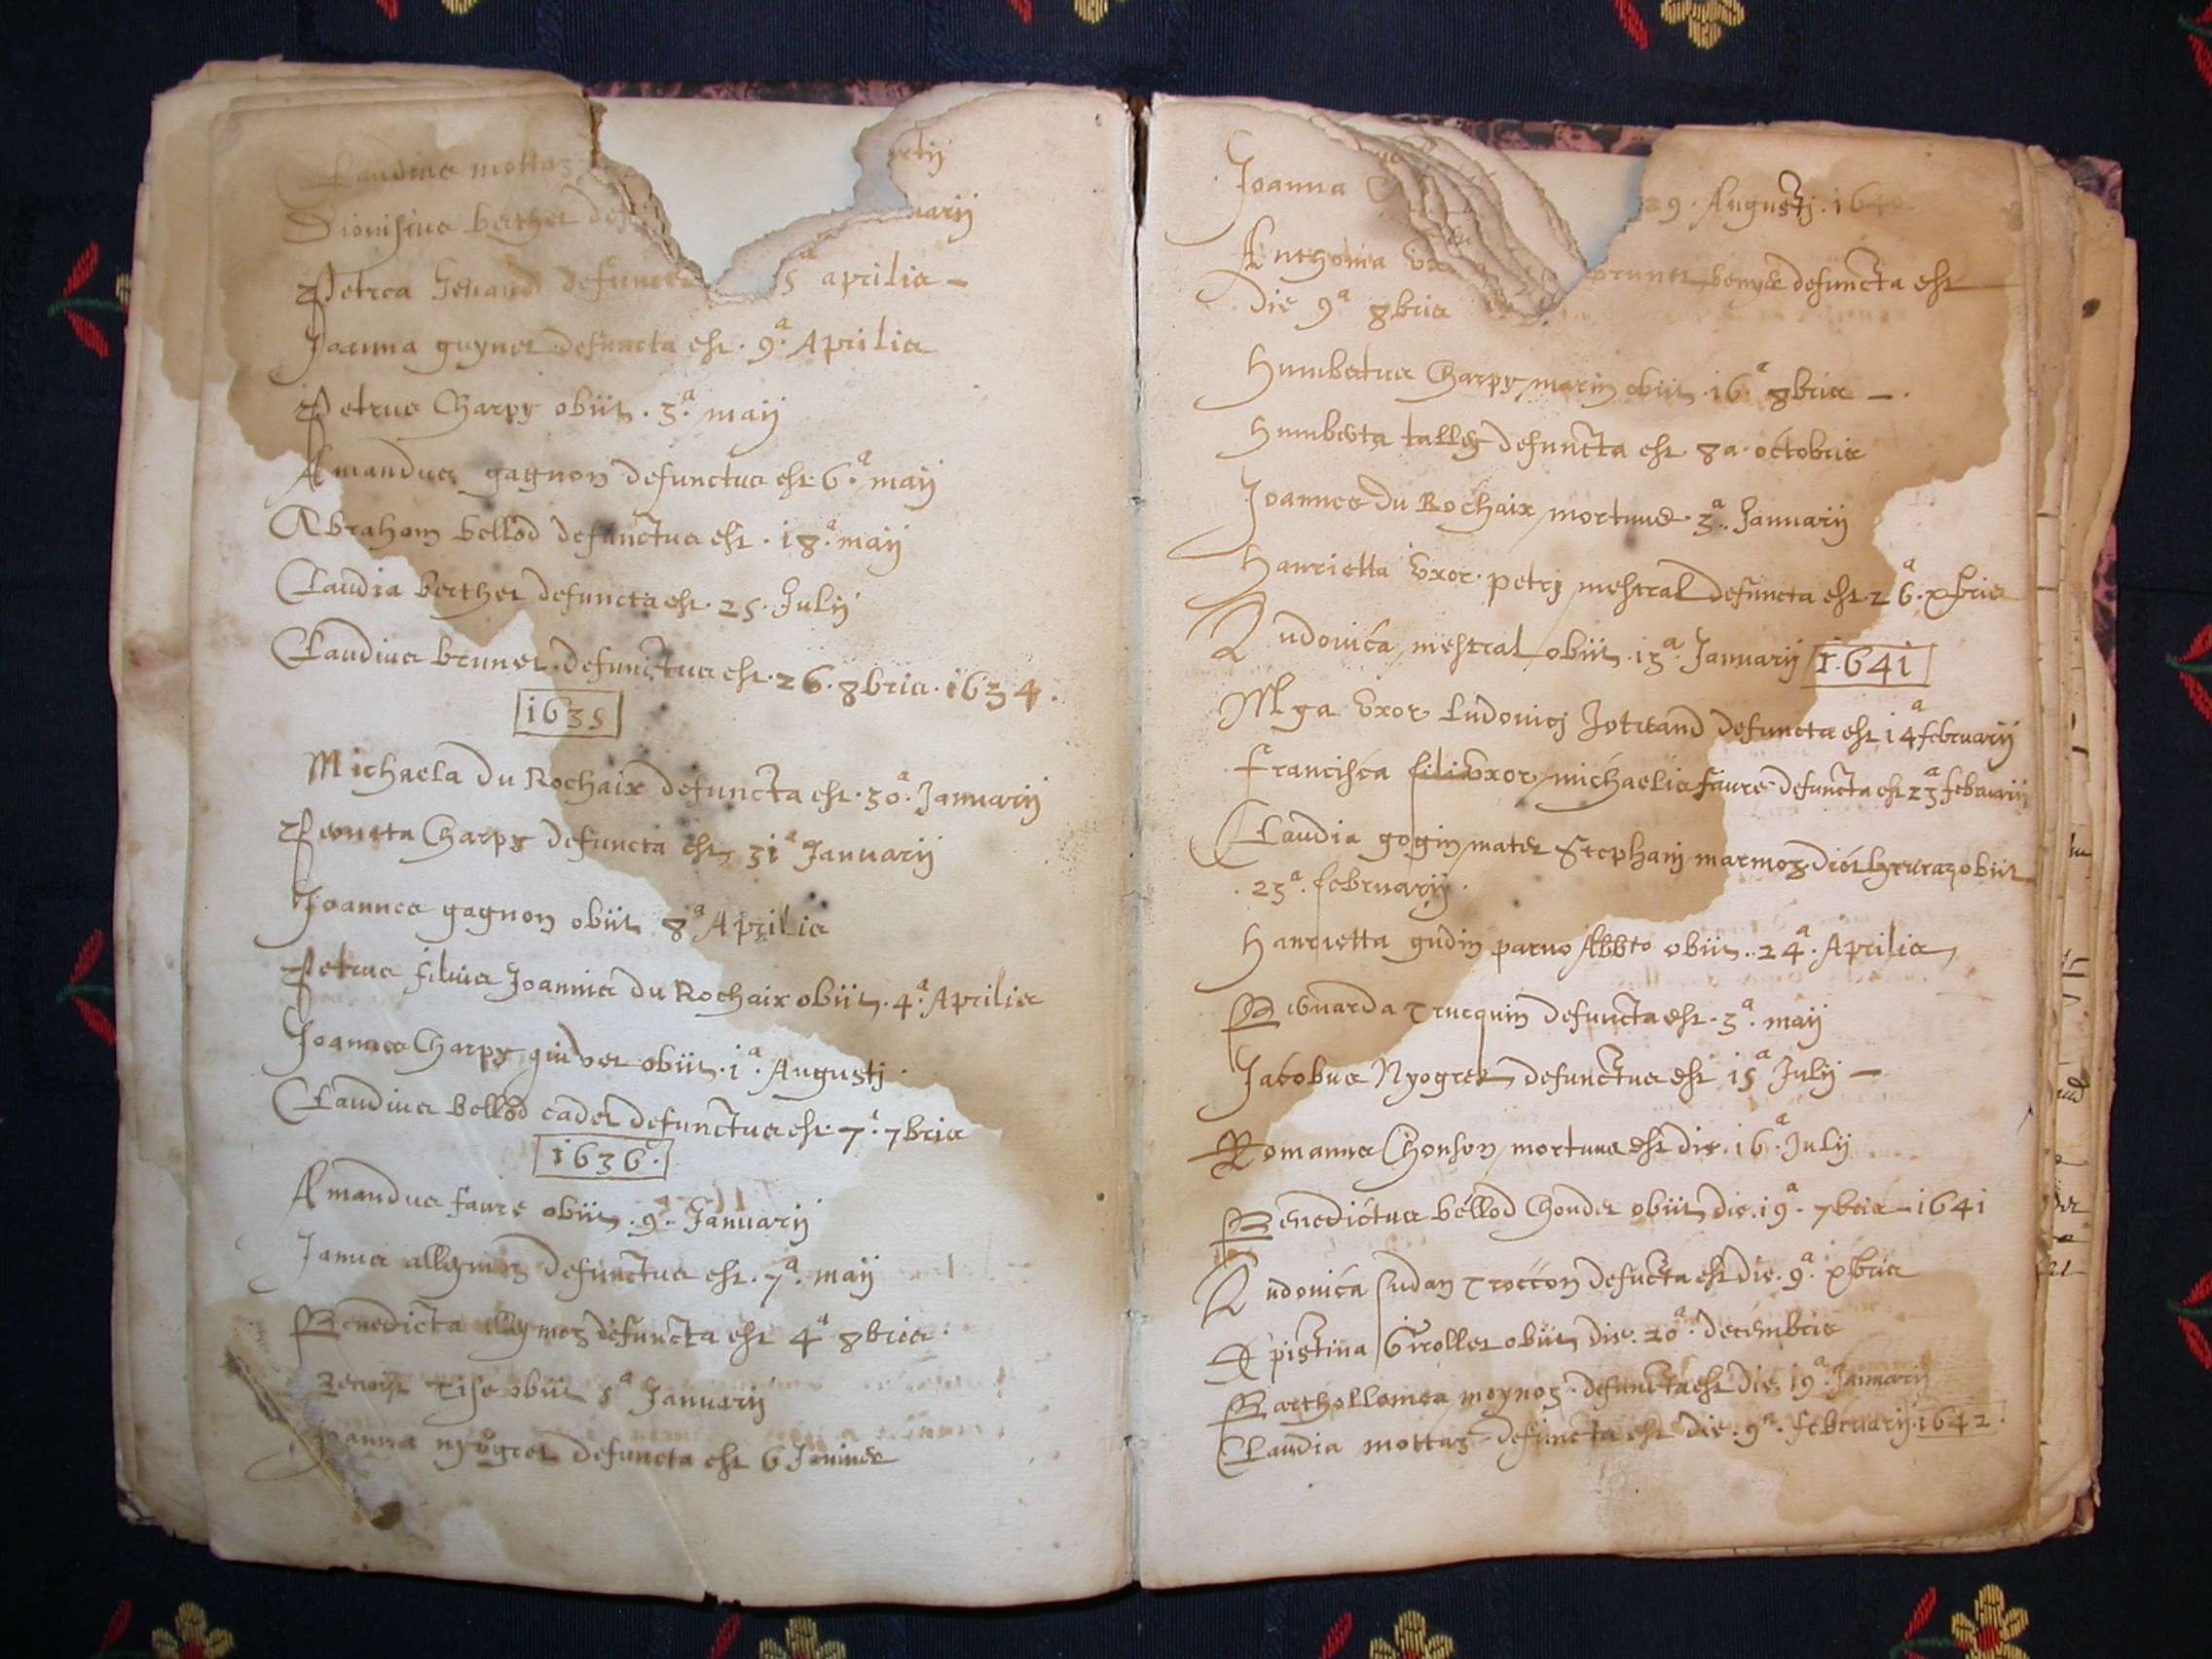 Claudius mottaz
Dionisius berthet def
uarij
Petrea Genand defuncta 5ᵃ aprilis –
Joanna guynet defuncta est. 9.ᵃ Aprilis
Petrus Charpy obiit. 3.ᵃ maij
Amandus gagnon defunctus est. 6.ᵃ maij
Abraham bellod defunctus est. 18.ᵃ maij
Claudia berthet defuncta est. 25. Julij
Claudius brunet defunctus est. 26. 8bris. 1634.
1635
Michaela du Rochaix defuncta est. 30.ᵃ Januarij
Charpy defuncta est 31ᵃ Januarij
Joannes gagnon obiit 8ᵃ Aprilis
Petrus filius Joannis du Rochaix obiit. 4.ᵃ Aprilis
Joannes Charpy obiit. 1.ᵃ Augustj.
Claudius bellod cadet defunctus est. 7.ᵃ 7bris
1636.
Amandus faure obiit. 9.ᵃ Januarij
Janus defunctus est. 7.ᵃ maij
Benedicta defuncta est 4ᵃ 8bris.
Benoist obiit 5ᵃ Januarij
Joanna nyogret defuncta est 6
Joanna 29. Augustj. 1640
Anthonia defuncta est
die 9ᵃ 8bris
Humbertus Charpy marin obiit. 16.ᵃ 8bris –.
Humberta defuncta est. 8a. octobris
Joannes du Rochaix mortuus. 3.ᵃ Januarij
Hanrietta vxor. petrj mestral defuncta est. 26.ᵃ xbris
Ludovica mestral obiit. 13.ᵃ Januarij 1641
Mya vxor Ludovicj defuncta est 14ᵃ februarij
Francisca vxor michaelis faure defuncta est 23ᵃ februarij
Claudia gogin mater Stephanj marmoz obiit
. 25ᵃ. februarij.
Hanrietta gudin parvo Abbto obiit.. 24.ᵃ Aprilis
Bernarda Trucquin defuncta est. 3.ᵃ maij
Jacobus Nyogret defunctus est 15ᵃ Julij –
Romanus Chonson mortuus est die. 16.ᵃ Julij
Benedictus bellod Chondet obiit die. 19.ᵃ 7bris – 1641
Ludovica sudan Troccon defucta est die. 9.ᵃ xbris
Xpistina Girollet obiit die. 20.ᵃ decembris
Barthollomea moynoz. defuncta est die. 19.ᵃ Januarij
Claudia mottaz defuncta est die. 9.ᵃ februarij. 1642.